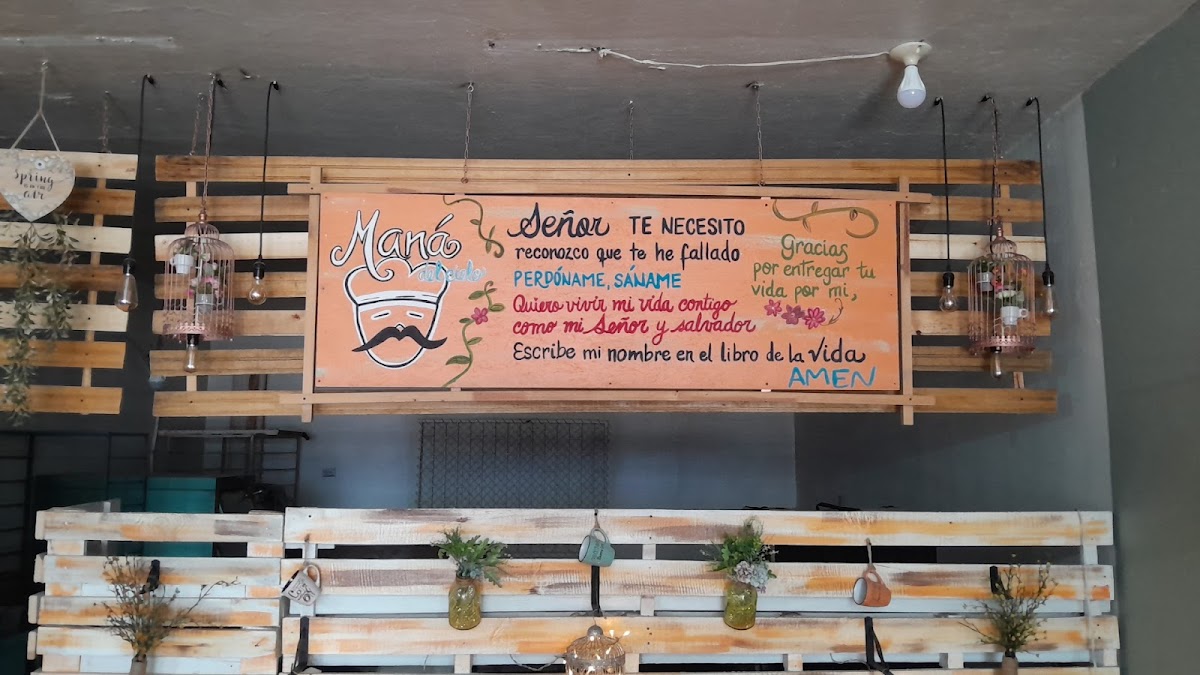 Spring
IS IN THE
air
Maná
del cielo
Señor TE NECESITO
reconozco que te he fallado
PERDÓNAME, SÁNAME
Quiero vivir mi vida contigo
como mi Señor y salvador
Escribe mi nombre en el libro de la vida
AMEN
Gracias
por entregar tu
vida por mi,